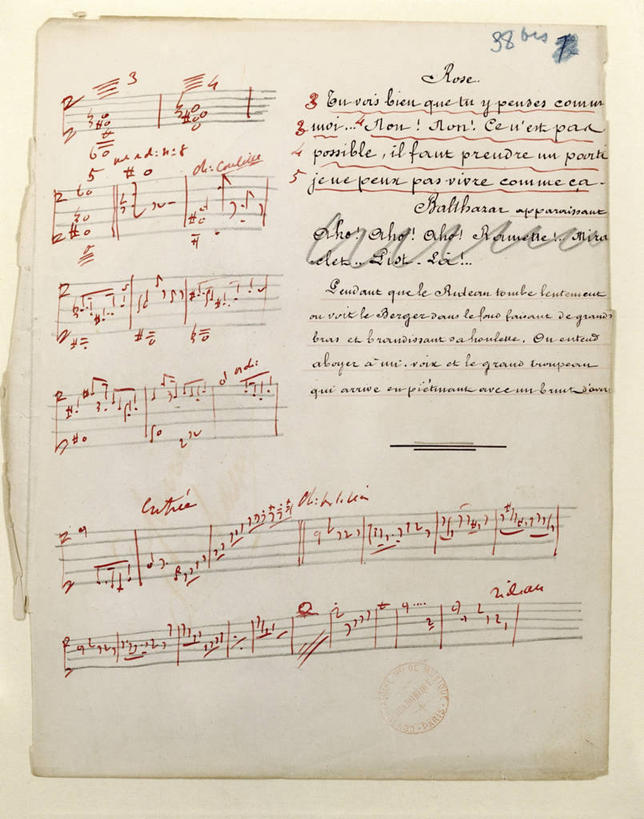 38 bis
3 4
Rose.
3 Tu vois bien que tu y penses comme
3 moi... 4 Non ! Non ! Ce n'est pas
4 possible, il faut prendre un parti
5 je ne peux pas vivre comme ça.
Balthazar apparaissant
Oho ! Oho ! Oho ! Roussette !.. Mira
clet.. Pist - Là !..
Pendant que le Rideau tombe lentement
on voit le Berger dans le fond faisant de grands
bras et brandissant sa houlette. On entend
aboyer à mi-voix et le grand troupeau
qui arrive en piétinant avec un bruit d'aver
5
Entrée
rideau
PARIS